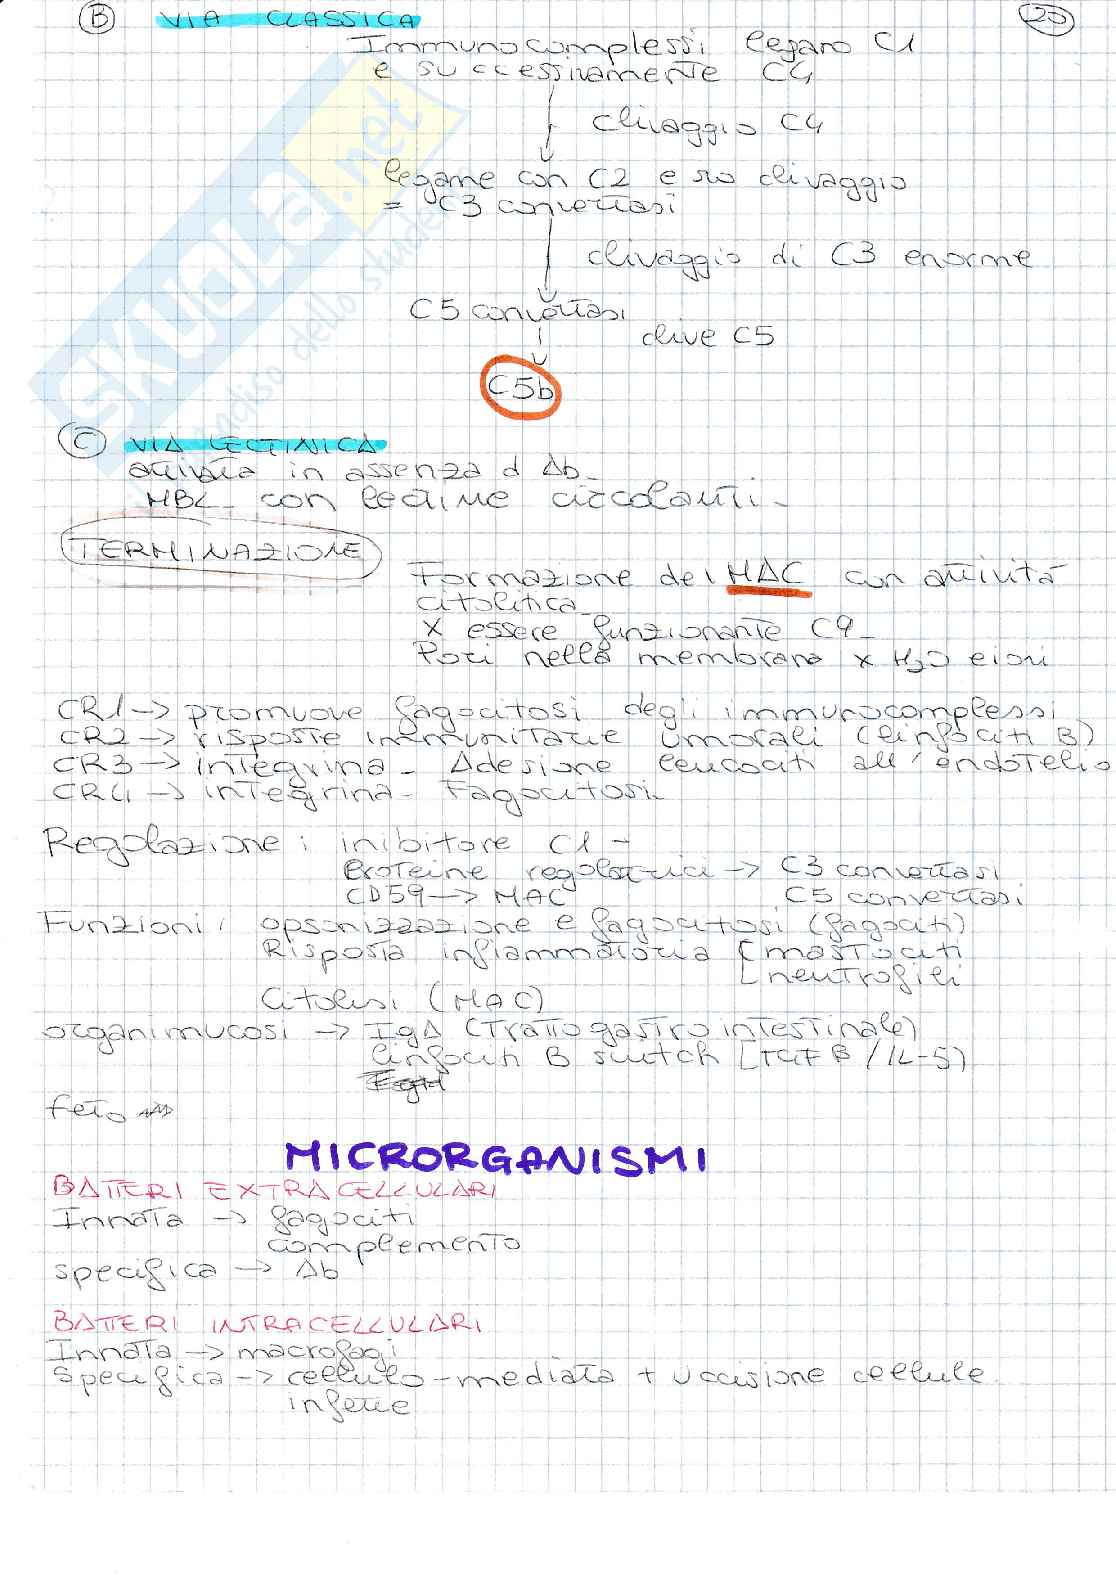 B VIA CLASSICA
20
Immunocomplessi legano C1
e successivamente C4
clivaggio C4
legame con C2 e suo clivaggio
= C3 convertasi
clivaggio di C3 enorme
C5 convertasi
clive C5
C5b
C VIA LECTINICA
attivata in assenza d Ab_
MBL_ con lectine circolanti_
TERMINAZIONE
Formazione del MAC con attività
citolitica_
x essere funzionante C9_
Pori nella membrana x H2O e ioni
CR1 → promuove fagocitosi degli immunocomplessi
CR2 → risposte immunitarie umorali (linfociti B)
CR3 → integrina_ Adesione leucociti all'endotelio
CR4 → integrina_ Fagocitosi
Regolazione: inibitore C1 -
Proteine regolatrici → C3 convertasi
CD59 → MAC C5 convertasi
Funzioni: opsonizzazione e fagocitosi (fagociti)
Risposta infiammatoria [mastociti
[neutrofili
Citolisi (MAC)
organi mucosi → IgA (Tratto gastrointestinale)
linfociti B switch [TGFβ / IL-5)
feto
MICRORGANISMI
BATTERI EXTRACELLULARI
Innata → fagociti
complemento
specifica → Ab
BATTERI INTRACELLULARI
Innata → macrofagi
Specifica → cellulo-mediata + uccisione cellule
infette
SKUOLA.net